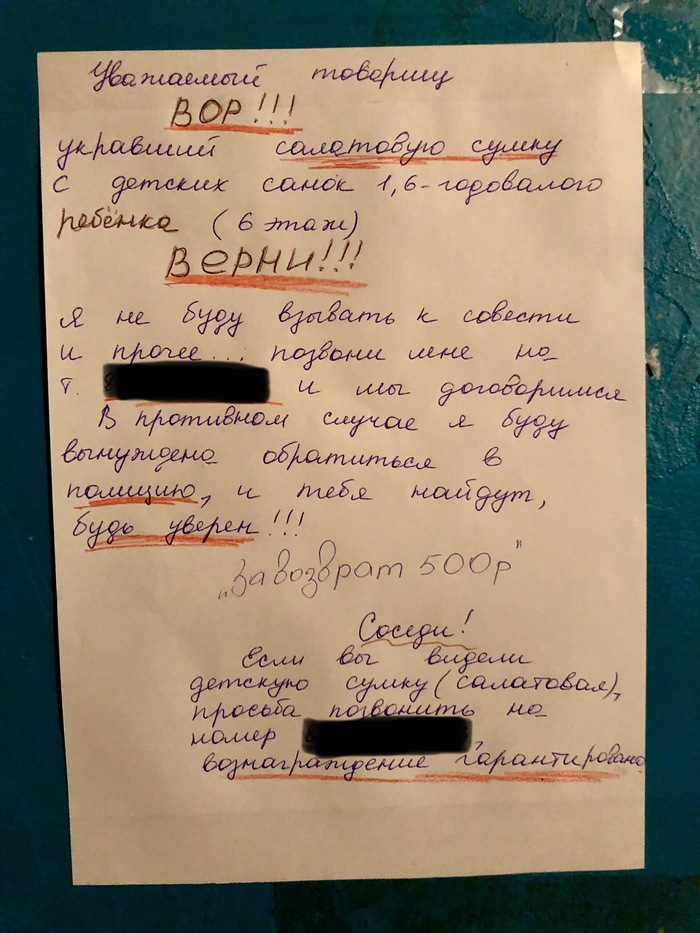 Уважаемый товарищ
ВОР!!!
укравший салатовую сумку
с детских санок 1,6-годовалого
ребёнка (6 этаж)
ВЕРНИ!!!
Я не буду взывать к совести
и прочее... позвони мне на
т. и мы договоримся
В противном случае я буду
вынуждена обратиться в
полицию, и тебя найдут,
будь уверен!!!
"За возврат 500р"
Соседи!
Если вы видели
детскую сумку (салатовая),
просьба позвонить на
номер
вознаграждение гарантировано